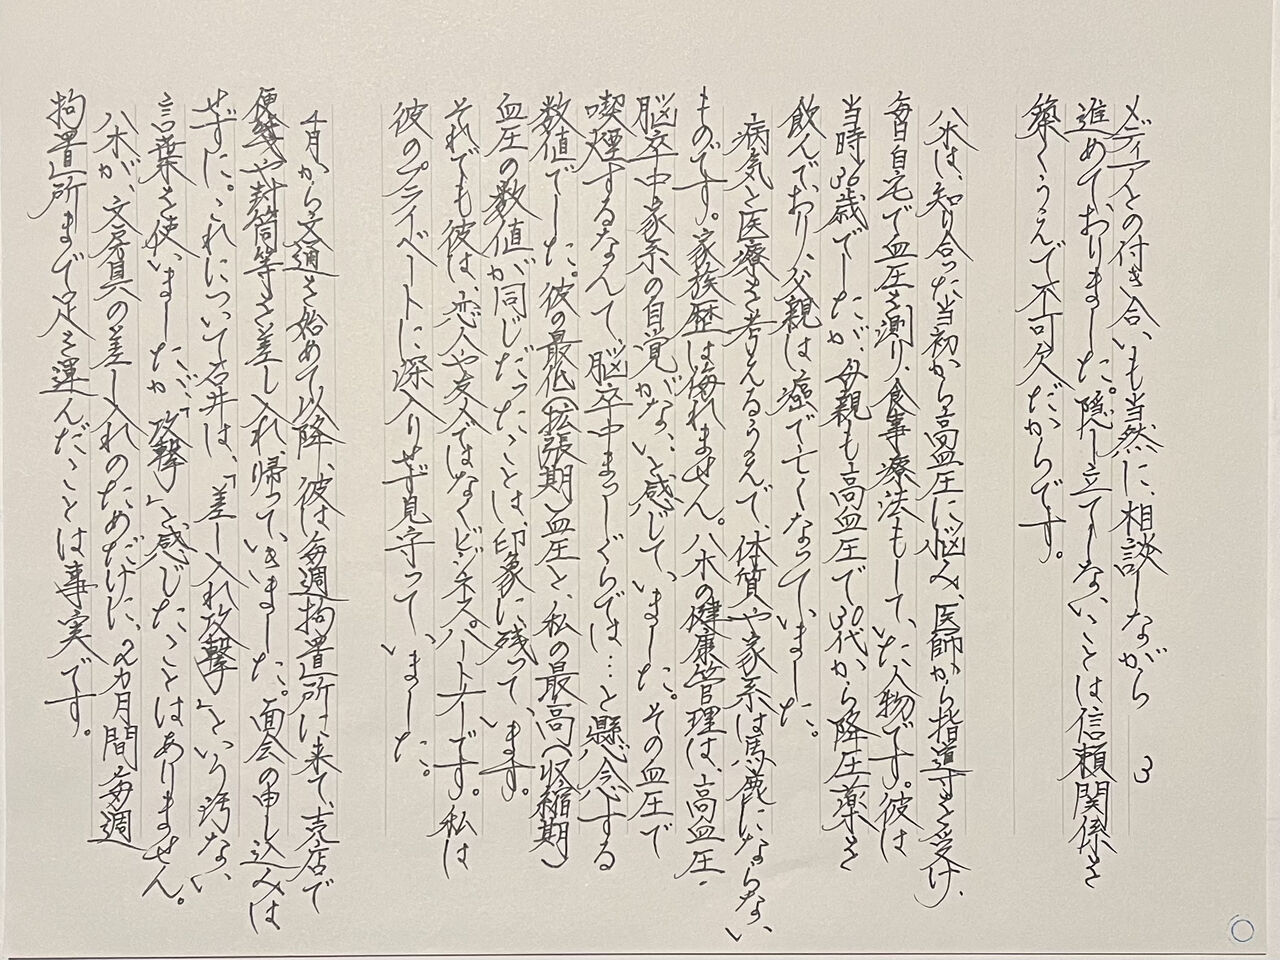 3
メディアとの付き合いも当然に、相談しながら
進めておりました。隠し立てしないことは信頼関係を
築くうえで不可欠だからです。
八木は、知り合った当初から高血圧に悩み、医師から指導を受け、
毎日自宅で血圧を測り、食事療法もしていた人物です。彼は
当時36歳でしたが、母親も高血圧で30代から降圧薬を
飲んでおり、父親は癌で亡くなっていました。
病気と医療を考えるうえで、体質や家系は馬鹿にならない
ものです。家族歴は侮れません。八木の健康管理は、高血圧・
脳卒中家系の自覚がないと感じていました。その血圧で
喫煙するなんて、脳卒中まっしぐらでは…と懸念する
数値でした。彼の最低(拡張期)血圧と、私の最高(収縮期)
血圧の数値が同じだったことは、印象に残っています。
それでも彼は、恋人や友人ではなくビジネスパートナーです。私は
彼のプライベートに深入りせず見守っていました。
4月から文通を始めて以降、彼は毎週拘置所に来て、売店で
便箋や封筒等を差し入れ、帰っていきました。面会の申し込みは
せずに。これについて石井は、「差し入れ攻撃」という汚ない
言葉を使いましたが、「攻撃」と感じたことはありません。
八木が、文房具の差し入れのためだけに、2カ月間毎週
拘置所まで足を運んだことは事実です。